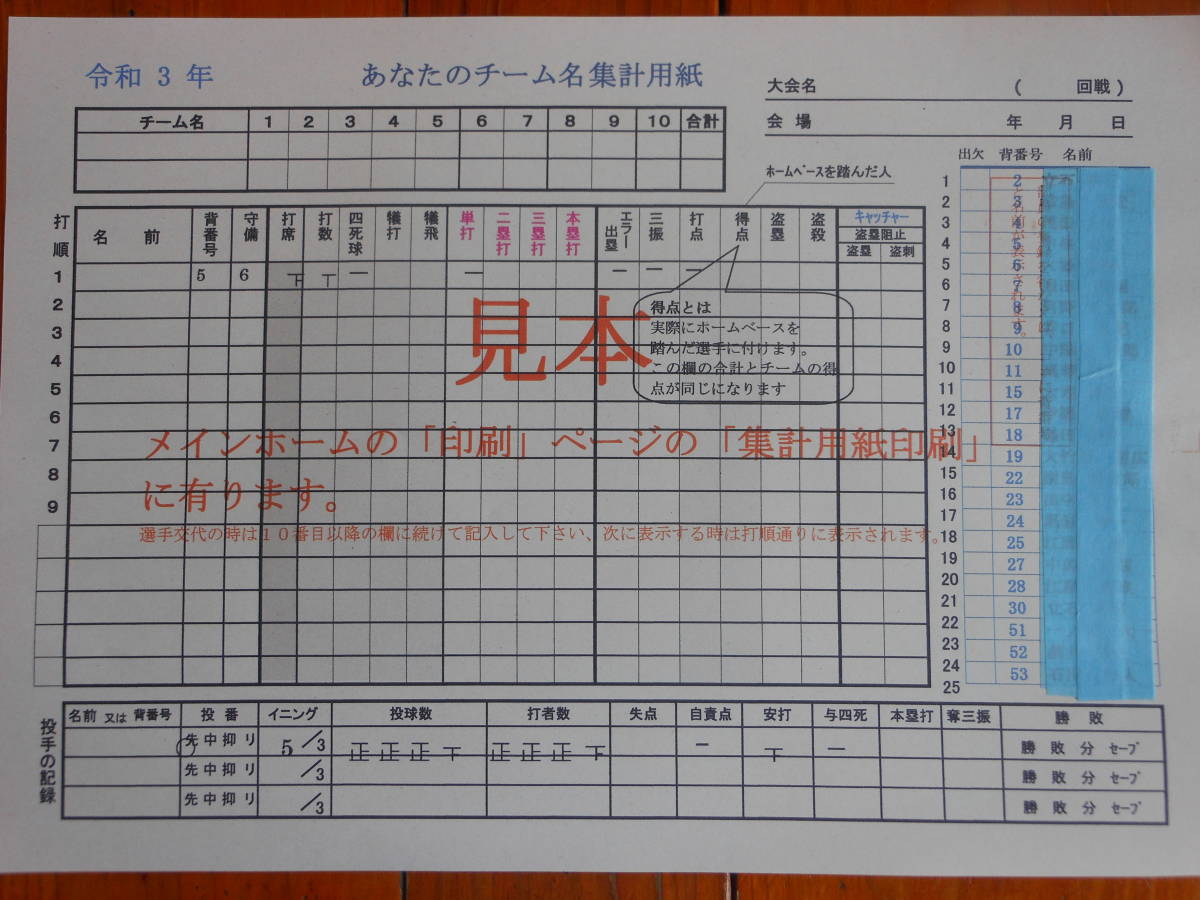 令和 3 年
あなたのチーム名集計用紙
大会名 ( 回戦 )
会 場 年 月 日
チーム名 1 2 3 4 5 6 7 8 9 10 合計
出欠 背番号 名前
ホームベースを踏んだ人
打順 名 前 背番号 守備 打席 打数 四死球 犠打 犠飛 単打 二塁打 三塁打 本塁打 エラー出塁 三振 打点 得点 盗塁 盗殺 キャッチャー
盗塁阻止
盗塁 盗刺
1 5 6 下 丅 一 一 一 一 一
2
3
4
5
6
7
8
9
見本
得点とは
実際にホームベースを
踏んだ選手に付けます。
この欄の合計とチームの得
点が同じになります
メインホームの「印刷」ページの「集計用紙印刷」
に有ります。
選手交代の時は１０番目以降の欄に続けて記入して下さい、次に表示する時は打順通りに表示されます。
1 2
2 3
3 4
4 5
5 6
6 7
7 8
8 9
9 10
10 11
11 15
12 17
13 18
14 19
15 22
16 23
17 24
18 25
19 27
20 28
21 30
22 51
23 52
24 53
25
投手の記録
名前 又は 背番号 投 番 イニング 投球数 打者数 失点 自責点 安打 与四死 本塁打 奪三振 勝 敗
先 中 抑 リ 5 /3 正 正 正 下 正 正 正 下 一 下 一 勝 敗 分 セーブ
先 中 抑 リ /3 勝 敗 分 セーブ
先 中 抑 リ /3 勝 敗 分 セーブ